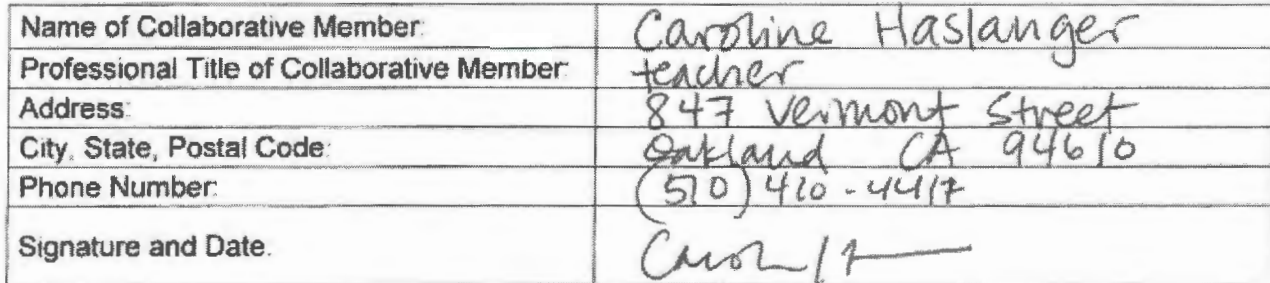 Name of Collaborative Member: Caroline Haslanger
Professional Title of Collaborative Member: teacher
Address: 847 Vermont Street
City, State, Postal Code: Oakland CA 94610
Phone Number: (510) 410-4417
Signature and Date: